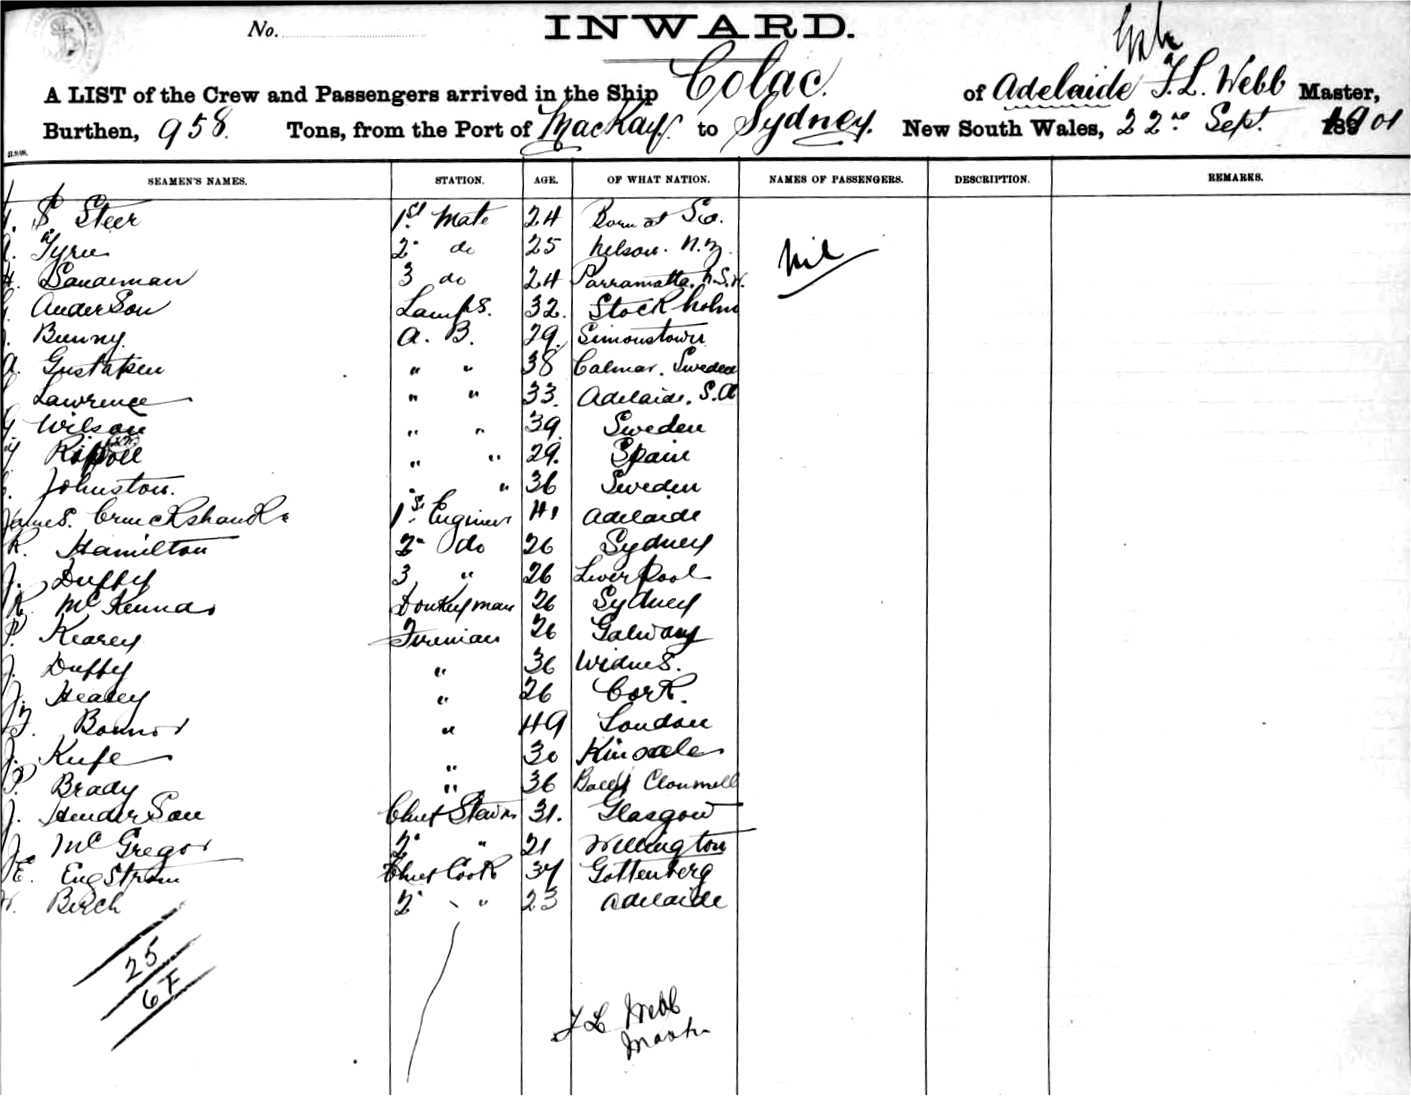 No.
INWARD.
A LIST of the Crew and Passengers arrived in the Ship Colac. of Adelaide F. L. Webb Master,
Burthen, 958. Tons, from the Port of MacKay. to Sydney. New South Wales, 22nd Sept. 1901
SEAMEN'S NAMES. STATION. AGE. OF WHAT NATION. NAMES OF PASSENGERS. DESCRIPTION. REMARKS.
Steer 1st Mate 24 Born at Sea. nil
Tyree 2 do 25 Nelson. N.Z.
H. Sandeman 3 do 24 Parramatta. N.S.W.
Anderson Lamps. 32. Stockholm
Bunny. A. B. 29. Simonstown
A. Gustafsen " " 38 Calmar. Sweden
Lawrence " " 33. Adelaide. S.A
Wilson " " 39. Sweden
Ripoll " " 29. Spain
Johnston. " " 36 Sweden
James. Cruickshank. 1st Engineer 41 Adelaide
R. Hamilton 2 do 26 Sydney
J. Duffy 3 " 26 Liverpool
R. McKenna Donkeyman 26 Sydney
P. Kearey Fireman 26 Galway
J. Duffy " 36 Widnes.
J. Healey " 26 Cork.
Bonnor " 49 London
J. Kufe " 30 Kinsale
P. Brady " 36 Clonmell
J. Henderson Chief Steward 31. Glasgow
J. McGregor 2 " 21 Wellington
E. Engstrom Chief Cook 34 Gottenberg
Birch 2 " 23 Adelaide
25
6 F
F L Webb
Master